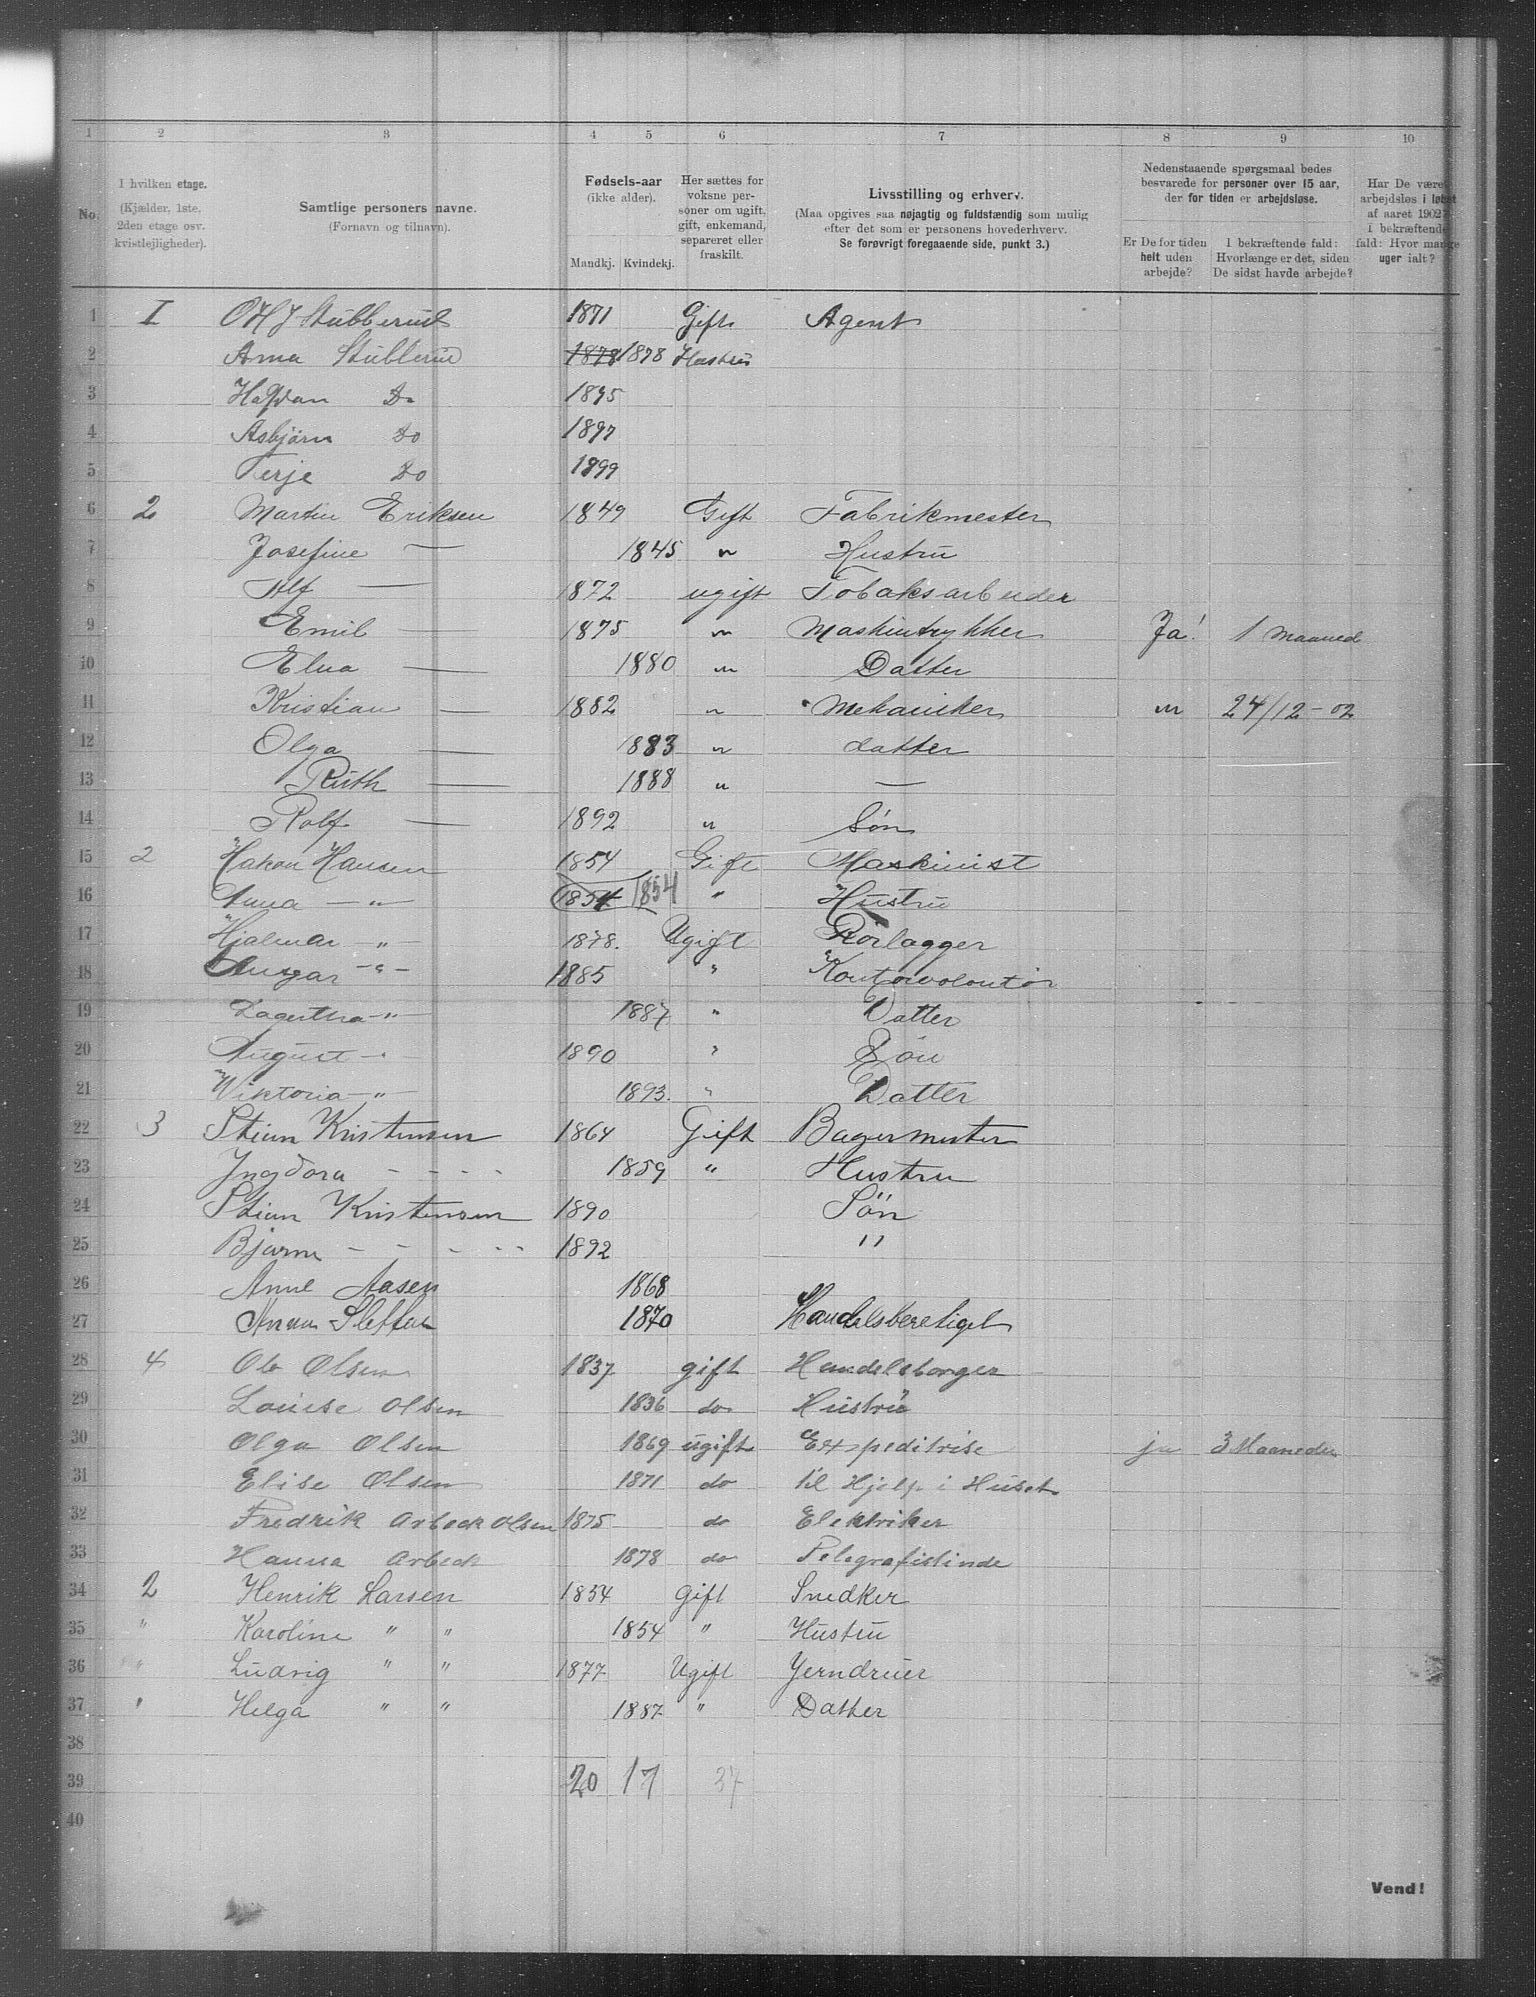 1 2 3 4 5 6 7 8 9 10
No.
I hvilken etage.
(Kjælder, 1ste,
2den etage osv.
kvistlejligheder).
Samtlige personers navne.
(Fornavn og tilnavn).
Fødsels-aar
(ikke alder).
Mandkj. Kvindekj.
Her sættes for
voksne per-
soner om ugift,
gift, enkemand,
separeret eller
fraskilt.
Livsstilling og erhverv.
(Maa opgives saa nøjagtig og fuldstændig som mulig
efter det som er personens hovederhverv.
Se forøvrigt foregaaende side, punkt 3.)
Nedenstaaende spørgsmaal bedes
besvarede for personer over 15 aar,
der for tiden er arbejdsløse.
Er De for tiden
helt uden
arbejde?
I bekræftende fald:
Hvorlænge er det, siden
De sidst havde arbejde?
Har De være
arbejdsløs i løbet
af aaret 1902
I bekræftende
fald: Hvor mange
uger ialt?
1 I O H J Stubberud 1871 Gift Agent
2 Anna Stubberud 1878 1878 Hustru
3 Halfdan Do 1895
4 Asbjørn Do 1897
5 Terje Do 1899
6 2 Martin Eriksen 1849 Gift Fabrikmester
7 Josefine — 1845 " Hustru
8 Alf — 1872 ugift Tobaksarbeider
9 Emil — 1875 " Maskintrykker Ja! 1 Maaned
10 Elna — 1880 " Datter
11 Kristian — 1882 " Mekaniker " 24/12-02
12 Olga — 1883 " datter
13 Ruth — 1888 " —
14 Rolf — 1892 " Søn
15 2 Hakon Hansen 1854 Gift Maskinist
16 Anna — " — 1854 1854 " Hustru
17 Hjalmar — " — 1878. Ugift Rørlægger
18 Ansgar — " — 1885 " Kontorvolontør
19 Lagertha — " — 1887 " Datter
20 August — " 1890 " Søn
21 Viktoria — " — 1893. " Datter
22 3 Stian Kristensen 1864 Gift Bagermester
23 Ingdora - - - - 1859 " Hustru
24 Stian Kristensen 1890 Søn
25 Bjarne - - - - - 1892 "
26 Anne Aasen 1868
27 Anna 1870 Handelsberetiget
28 4 Ole Olsen 1837 gift Handelsborger
29 Louise Olsen 1836 do Hustru
30 Olga Olsen 1869 ugift Expeditrise ja 3 Maaneder
31 Elise Olsen 1871 do til Hjelp i Huset
32 Fredrik Arbeck Olsen 1875 do Elektriker
33 Hanna Arbeck 1878 do Telegrafistinde
34 2 Henrik Larsen 1854 Gift Snedker
35 " Karoline " " 1854 " Hustru
36 " Ludvig " " 1877 Ugift Jerndreier
37 " Helga " " 1887 " Datter
38
39 20 17 37
40
Vend!